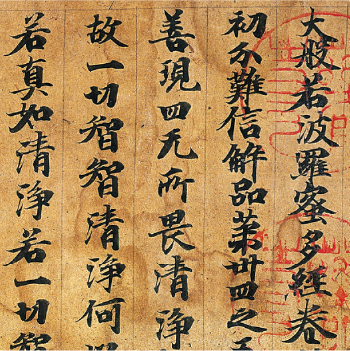 大般若波羅蜜多經卷
初分難信解品苐丗四之
善現四无所畏清淨
故一切智智清淨何
若真如清淨若一切智